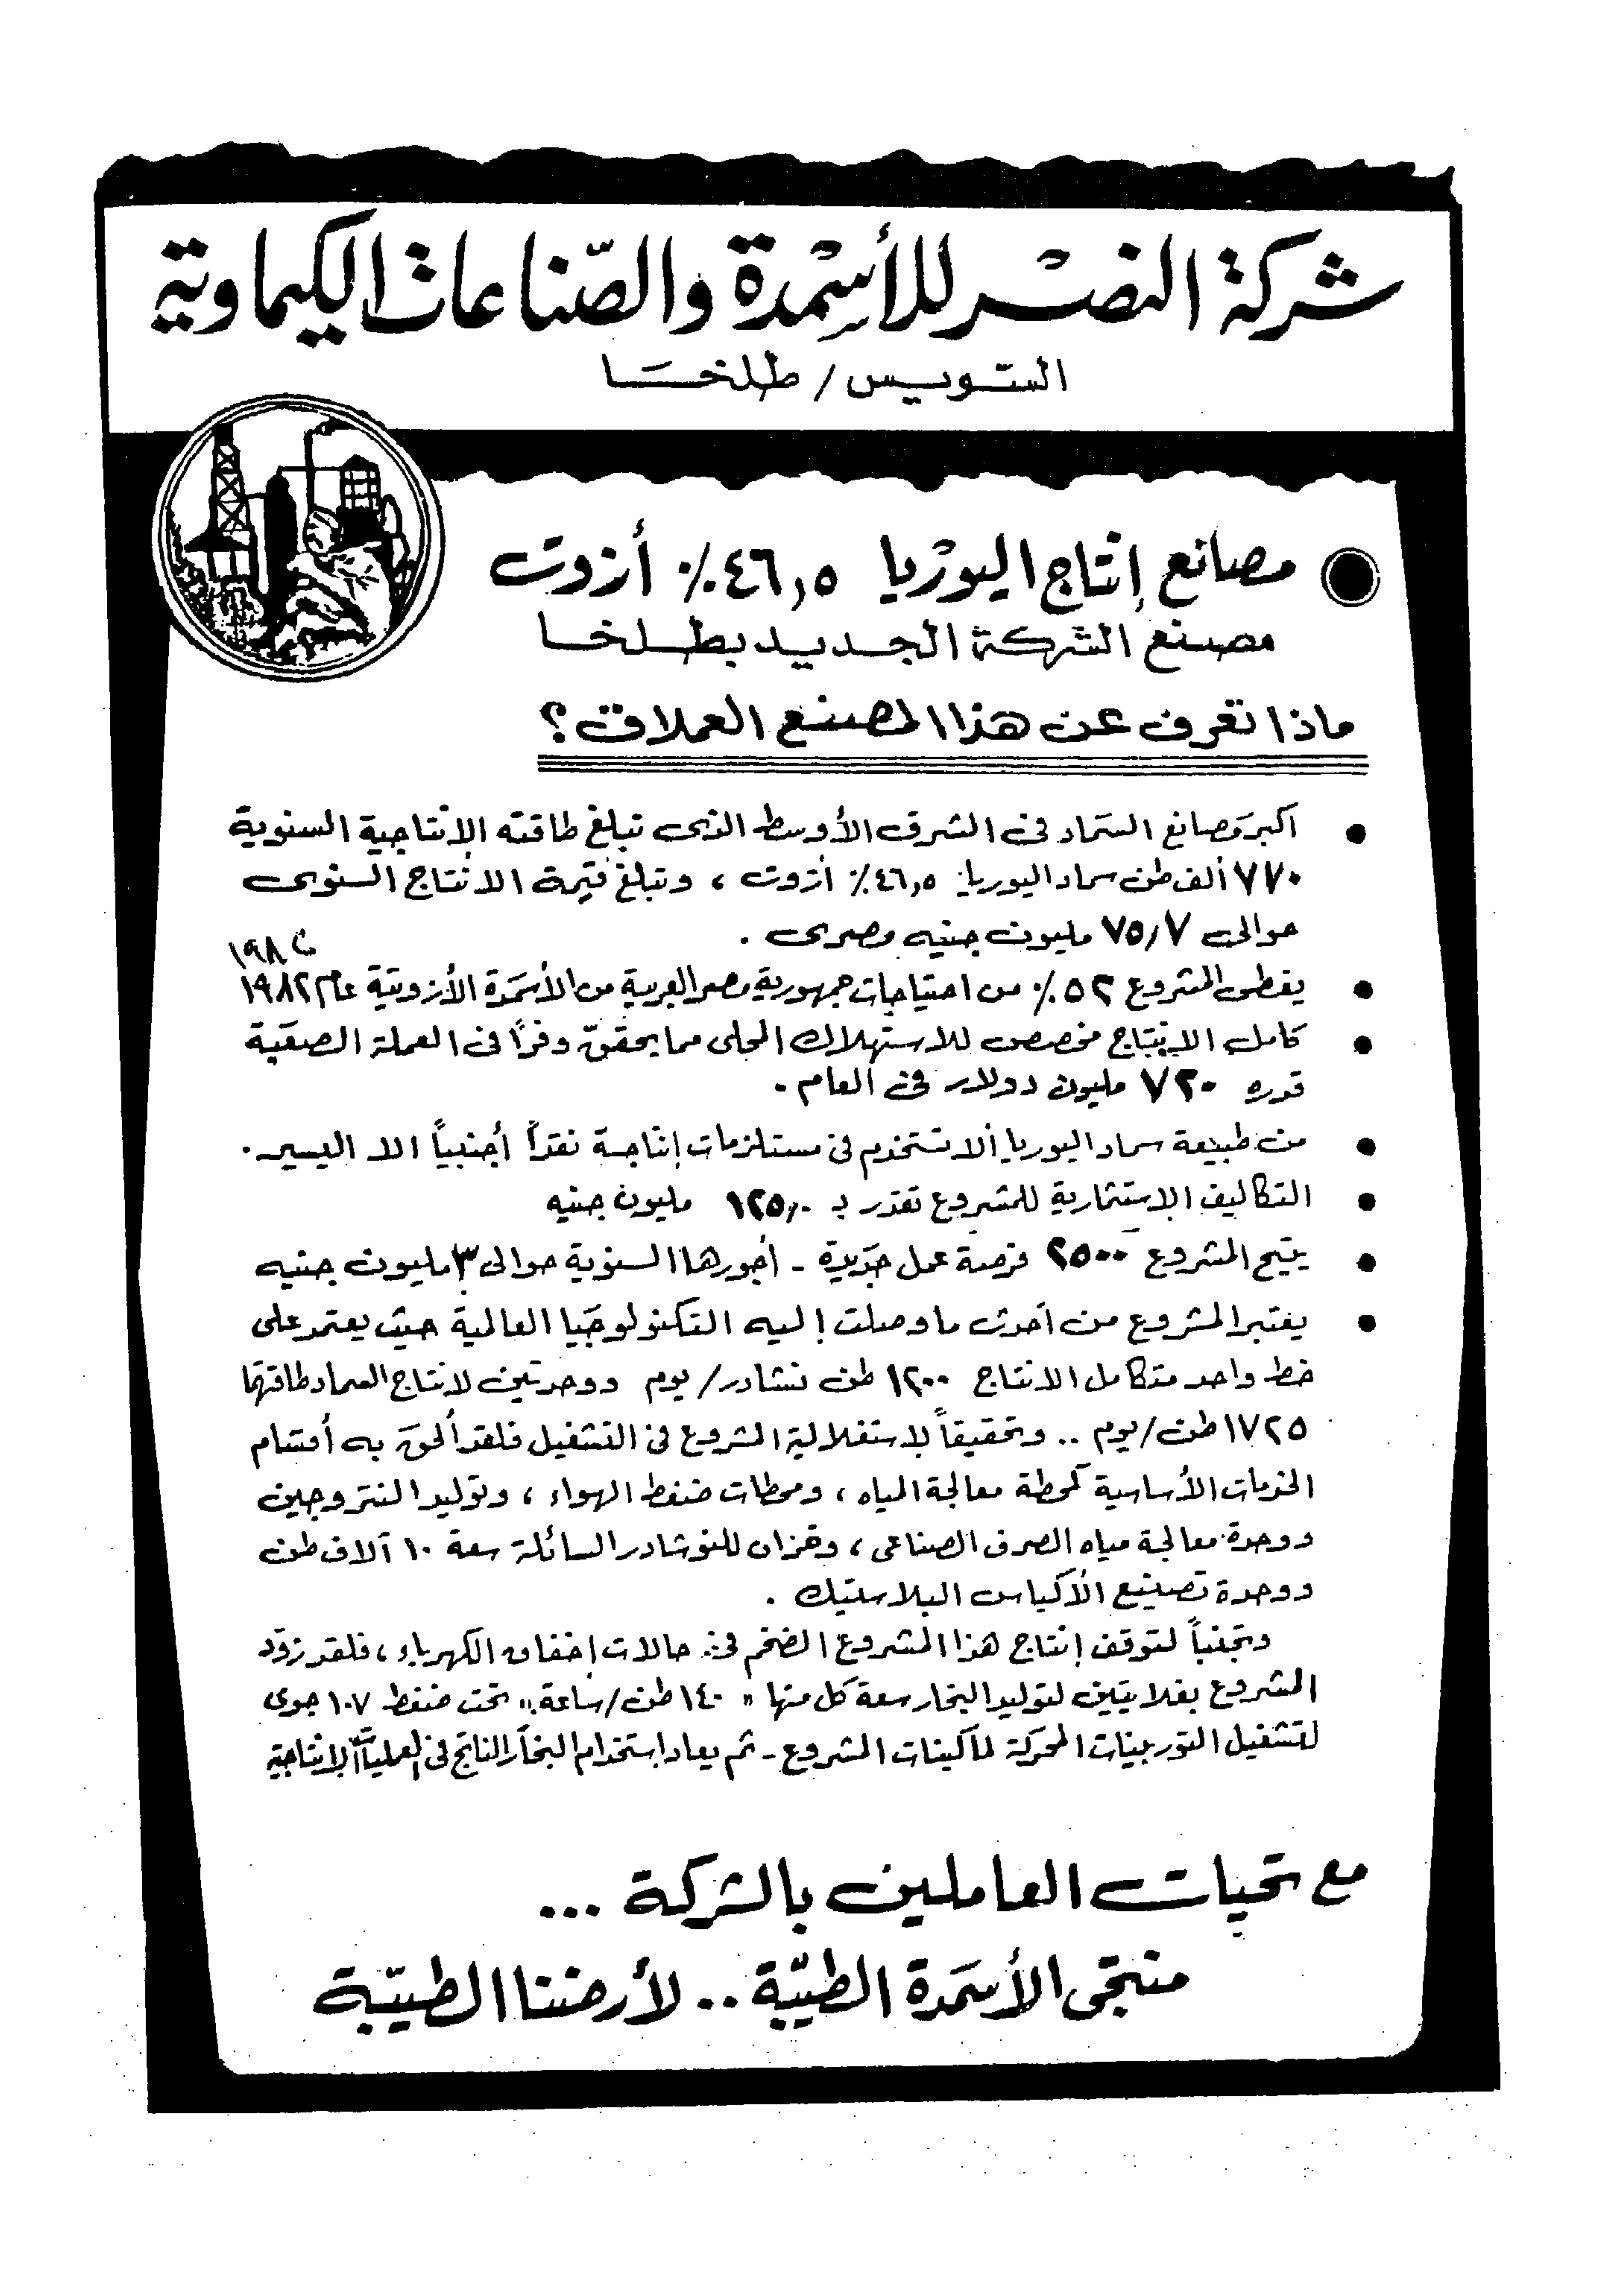 شركة النصر للأسمدة والصناعات الكيماوية
السويس / طلخا
مصانع إنتاج اليوريا ٤٦,٥٪ أزوت
مصنع الشركة الجديد بطلخا
ماذا تعرف عن هذا المصنع العملاق؟
أكبر مصانع السماد فى الشرق الأوسط الذى تبلغ طاقته الانتاجية السنوية
٧٧٠ ألف طن سماد اليوريا ٤٦,٥٪ أزوت ، وتبلغ قيمة الانتاج السنوى
حوالى ٧٥,٧ مليون جنيه مصرى .
يغطى المشروع ٥٢٪ من احتياجات جمهورية مصر العربية من الأسمدة الأزوتية عام ١٩٨٢
كامل الانتاج مخصص للاستهلاك المحلى مما يحقق وفراً فى العملة الصعبة
قدره ٧٢٠ مليون دولار فى العام .
من طبيعة سماد اليوريا ألا تستخدم فى مستلزمات إنتاجة نقداً أجنبياً الا اليسير .
التكاليف الاستثمارية للمشروع تقدر بـ ١٢٥,٠ مليون جنيه
يتيح المشروع ٢٥٠٠ فرصة عمل جديدة - أجورها السنوية حوالى ٣ مليون جنيه
يعتبر المشروع من أحدث ما وصلت إليه التكنولوجيا العالمية حيث يعتمد على
خط واحد متكامل الانتاج ١٢٠٠ طن نشادر/يوم ووحدتين لانتاج السماد طاقتها
١٧٢٥ طن/يوم .. وتحقيقاً لاستقلالية المشروع فى التشغيل فلقد ألحق به أقسام
الخدمات الأساسية كمحطة معالجة المياه ، ومحطات ضغط الهواء ، وتوليد النتروجين
ووحدة معالجة مياه الصرف الصناعى ، وخزان للنوشادر السائلة سعة ١٠ آلاف طن
ووحدة تصنيع الأكياس البلاستيك .
وتجنباً لتوقف إنتاج هذا المشروع الضخم فى حالات إخفاق الكهرباء ، فلقد زود
المشروع بغلايتين لتوليد البخار سعة كل منها " ١٤٠ طن/ساعة " تحت ضغط ١٠٧ جوى
لتشغيل التوربينات المحركة لماكينات المشروع - ثم يعاد استخدام البخار الناتج فى العمليات الانتاجية
مع تحيات العاملين بالشركة ...
منتجى الأسمدة الطيبة .. لأرضنا الطيبة